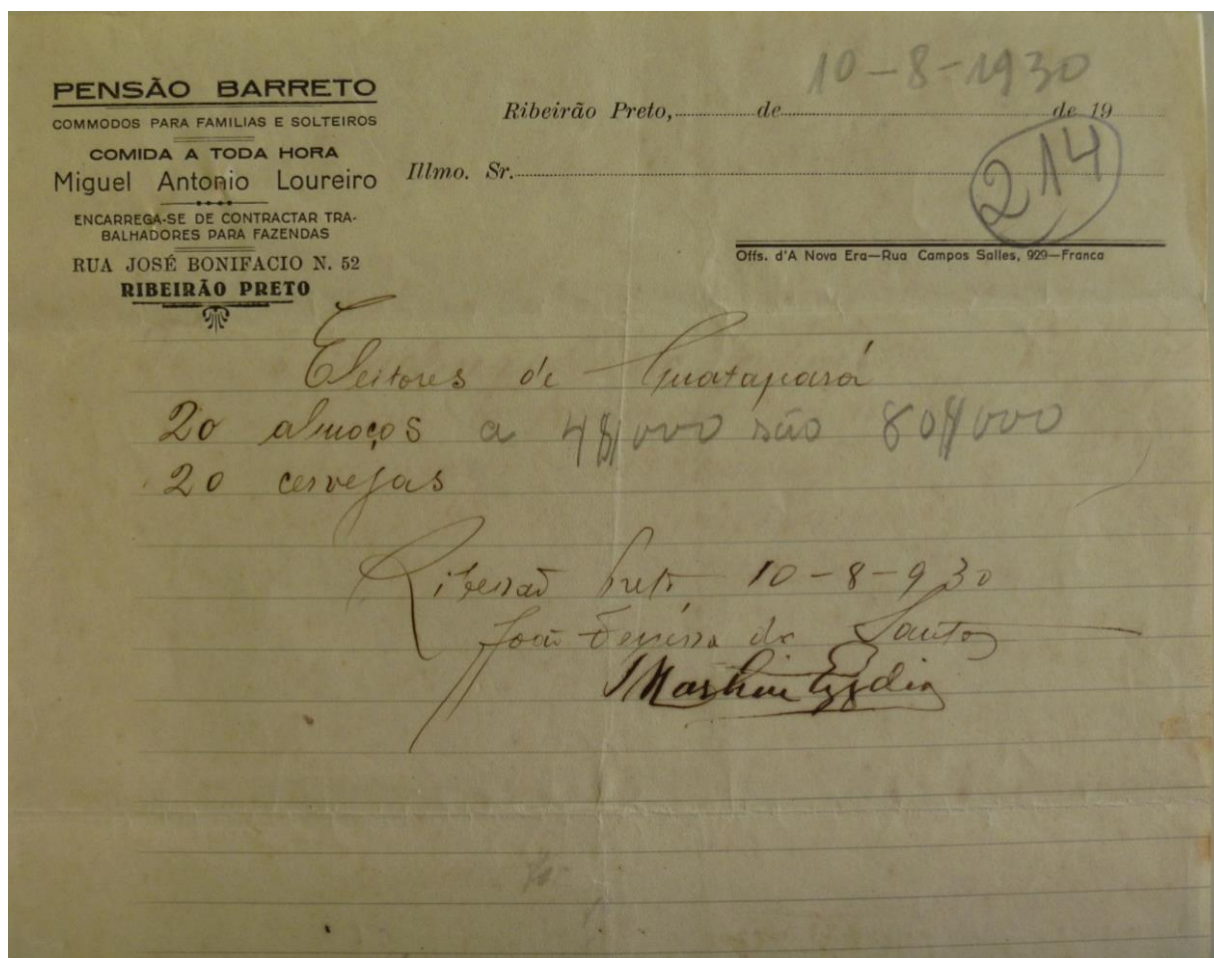 PENSÃO BARRETO
COMMODOS PARA FAMILIAS E SOLTEIROS
COMIDA A TODA HORA
Miguel Antonio Loureiro
ENCARREGA-SE DE CONTRACTAR TRA-
BALHADORES PARA FAZENDAS
RUA JOSÉ BONIFACIO N. 52
RIBEIRÃO PRETO
10-8-1930
Ribeirão Preto, de de 19
Illmo. Sr.
214
Offs. d'A Nova Era—Rua Campos Salles, 929—Franca
Eleitores de Guatapará
20 almoços a 4$000 são 80$000
20 cervejas
Ribeirão Preto, 10-8-930
João Teixeira dos Santos
Martim